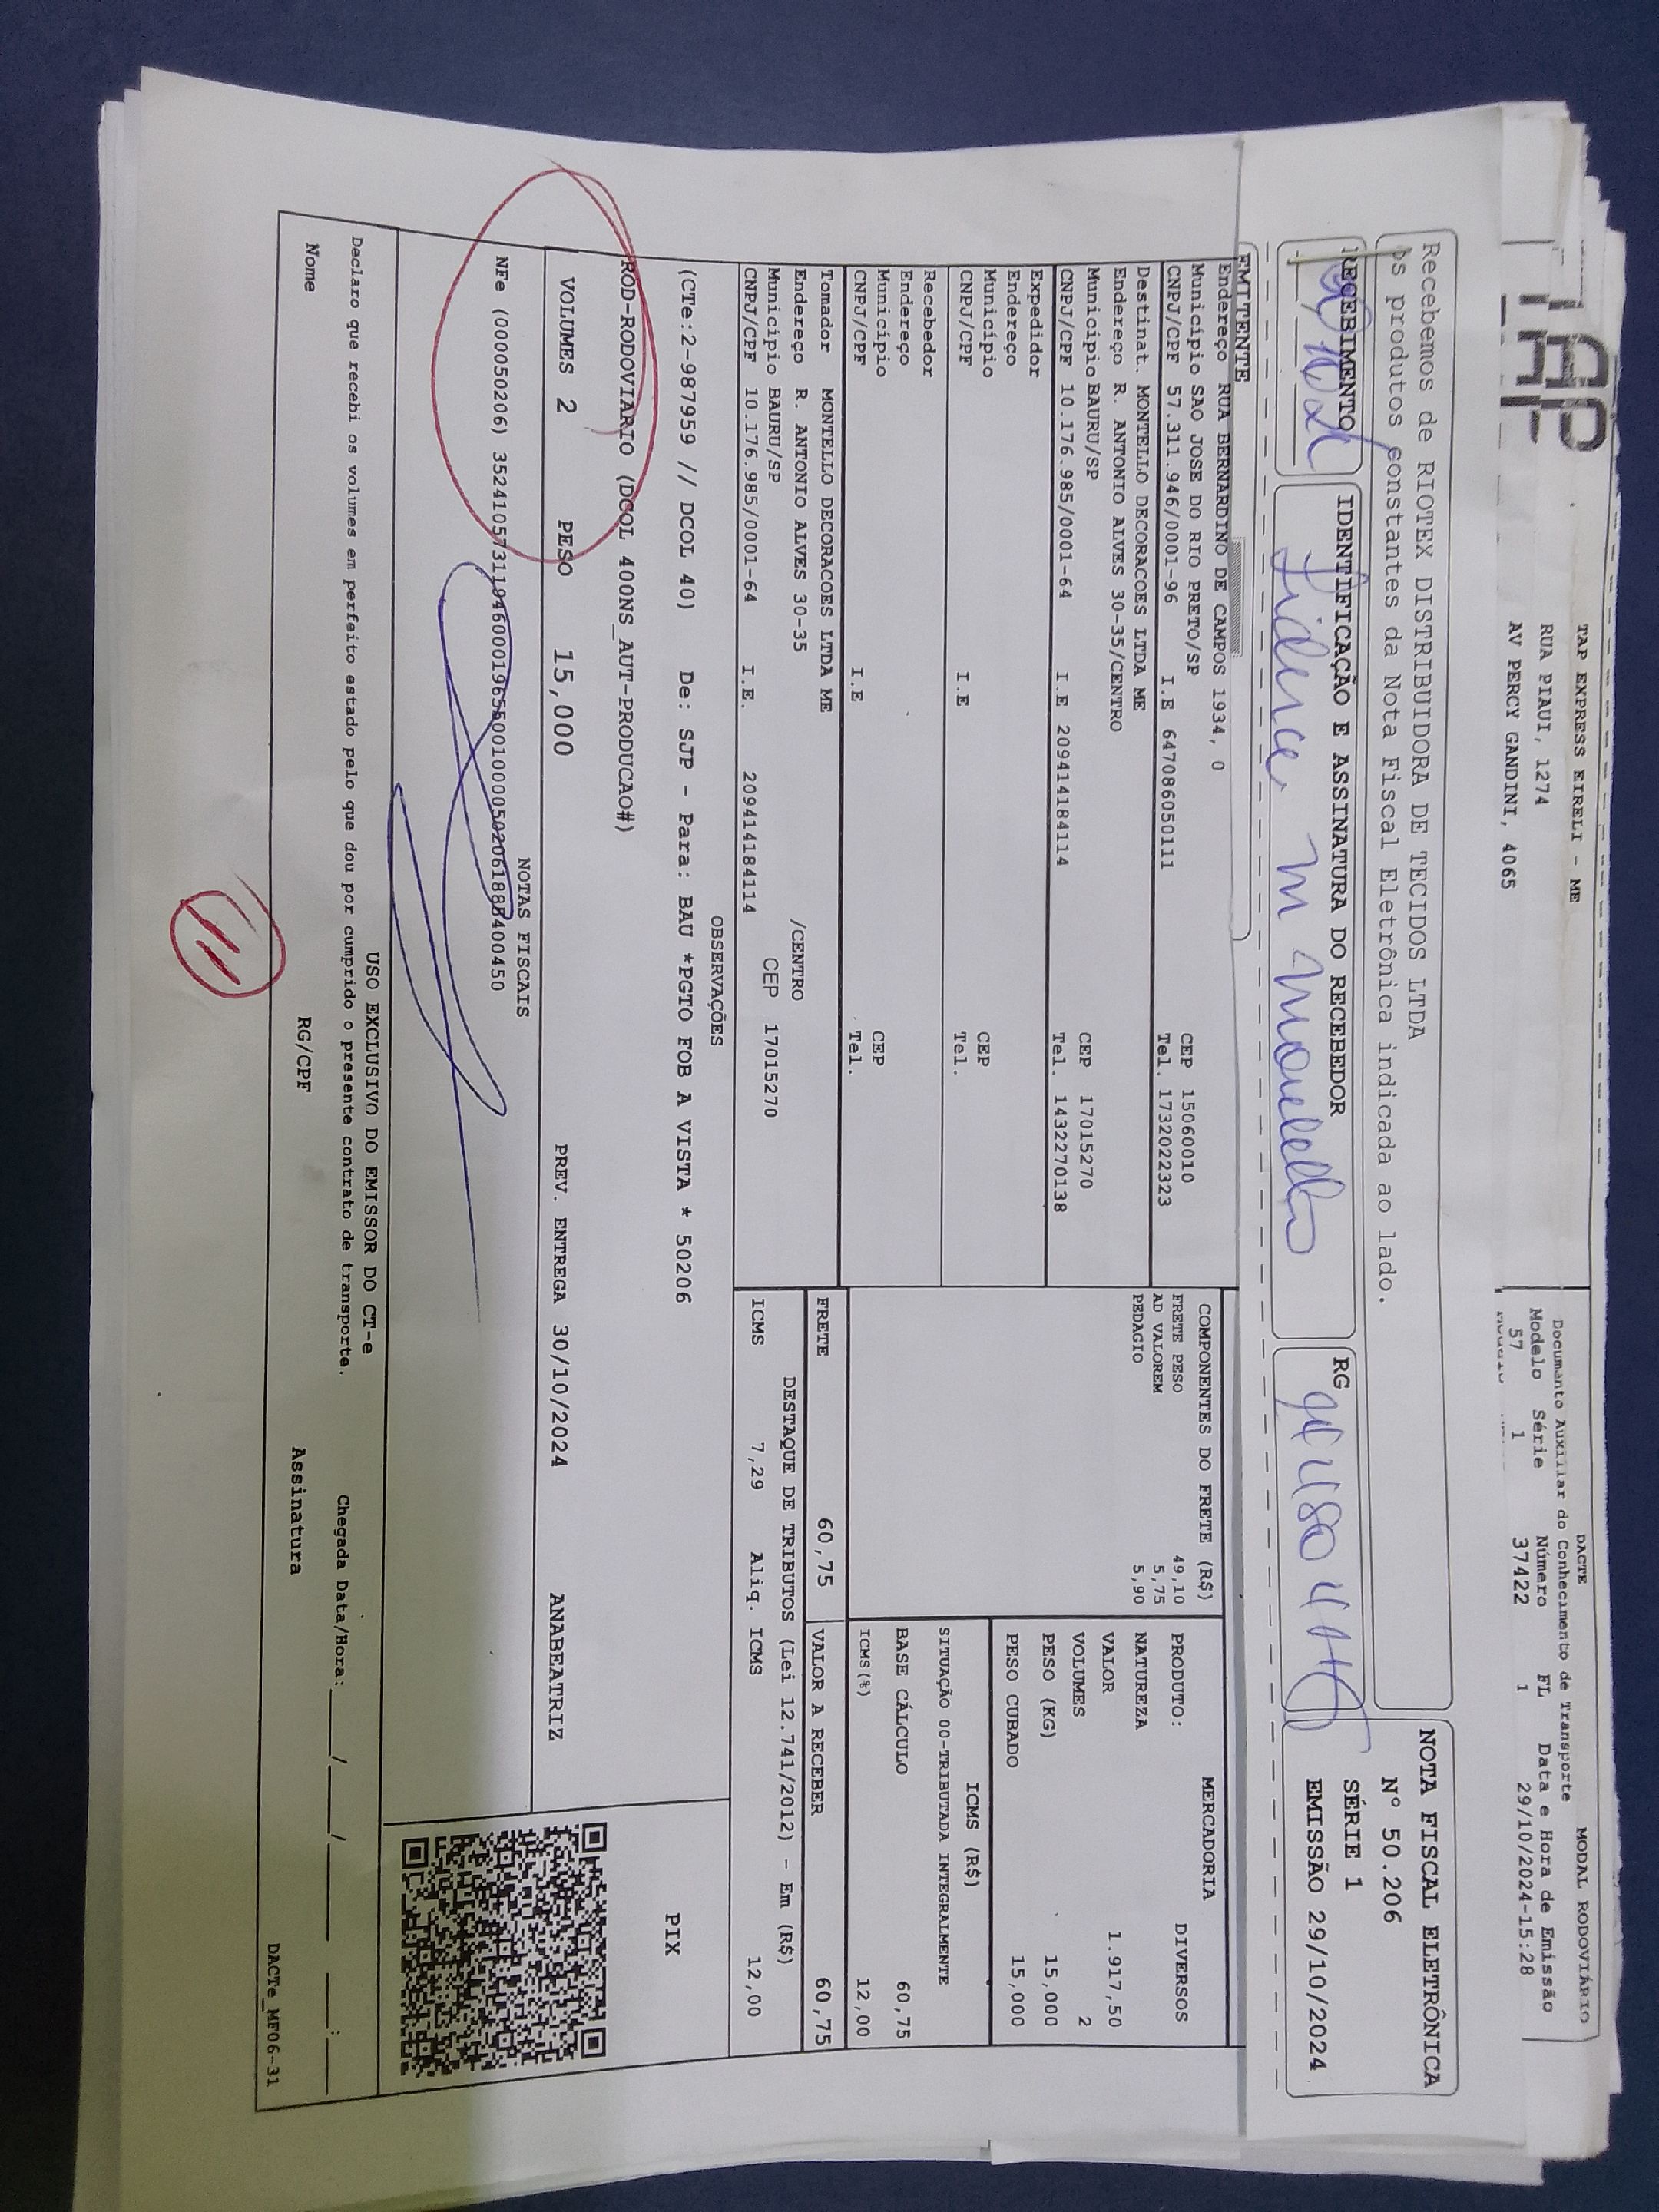 TAP
TAP EXPRESS EIRELI - ME
RUA PIAUI, 1274
AV PERCY GANDINI, 4065
DACTE
Documento Auxiliar do Conhecimento de Transporte
MODAL RODOVIÁRIO
Modelo Série Número FL Data e Hora de Emissão
57 1 37422 1 29/10/2024-15:28
Recebemos de RIOTEX DISTRIBUIDORA DE TECIDOS LTDA
os produtos constantes da Nota Fiscal Eletrônica indicada ao lado.
NOTA FISCAL ELETRÔNICA
N° 50.206
SÉRIE 1
EMISSÃO 29/10/2024
RECEBIMENTO
IDENTIFICAÇÃO E ASSINATURA DO RECEBEDOR
RG
EMITENTE
Endereço RUA BERNARDINO DE CAMPOS 1934, 0
Município SAO JOSE DO RIO PRETO/SP CEP 15060010
CNPJ/CPF 57.311.946/0001-96 I.E 647086050111 Tel. 1732022323
Destinat. MONTELLO DECORACOES LTDA ME
Endereço R. ANTONIO ALVES 30-35/CENTRO
Município BAURU/SP CEP 17015270
CNPJ/CPF 10.176.985/0001-64 I.E 209414184114 Tel. 1432270138
Expedidor
Endereço
Município CEP
CNPJ/CPF I.E Tel.
Recebedor
Endereço
Município CEP
CNPJ/CPF I.E Tel.
Tomador MONTELLO DECORACOES LTDA ME
Endereço R. ANTONIO ALVES 30-35 /CENTRO
Município BAURU/SP CEP 17015270
CNPJ/CPF 10.176.985/0001-64 I.E. 209414184114
COMPONENTES DO FRETE (R$)
FRETE PESO 49,10
AD VALOREM 5,75
PEDAGIO 5,90
MERCADORIA
PRODUTO: DIVERSOS
NATUREZA
VALOR 1.917,50
VOLUMES 2
PESO (KG) 15,000
PESO CUBADO 15,000
ICMS (R$)
SITUAÇÃO 00-TRIBUTADA INTEGRALMENTE
BASE CÁLCULO 60,75
ICMS(%) 12,00
FRETE 60,75 VALOR A RECEBER 60,75
DESTAQUE DE TRIBUTOS (Lei 12.741/2012) - Em (R$)
ICMS 7,29 Aliq. ICMS 12,00
OBSERVAÇÕES
(CTe:2-987959 // DCOL 40) De: SJP - Para: BAU *PGTO FOB A VISTA * 50206
ROD-RODOVIARIO (DCOL 400NS_AUT-PRODUCAO#)
PIX
VOLUMES 2 PESO 15,000 PREV. ENTREGA 30/10/2024 ANABEATRIZ
NOTAS FISCAIS
NFe (000050206)
USO EXCLUSIVO DO EMISSOR DO CT-e
Declaro que recebi os volumes em perfeito estado pelo que dou por cumprido o presente contrato de transporte. Chegada Data/Hora:___/___/___ ___:___
Nome RG/CPF Assinatura
DACTe_MF06-31
11